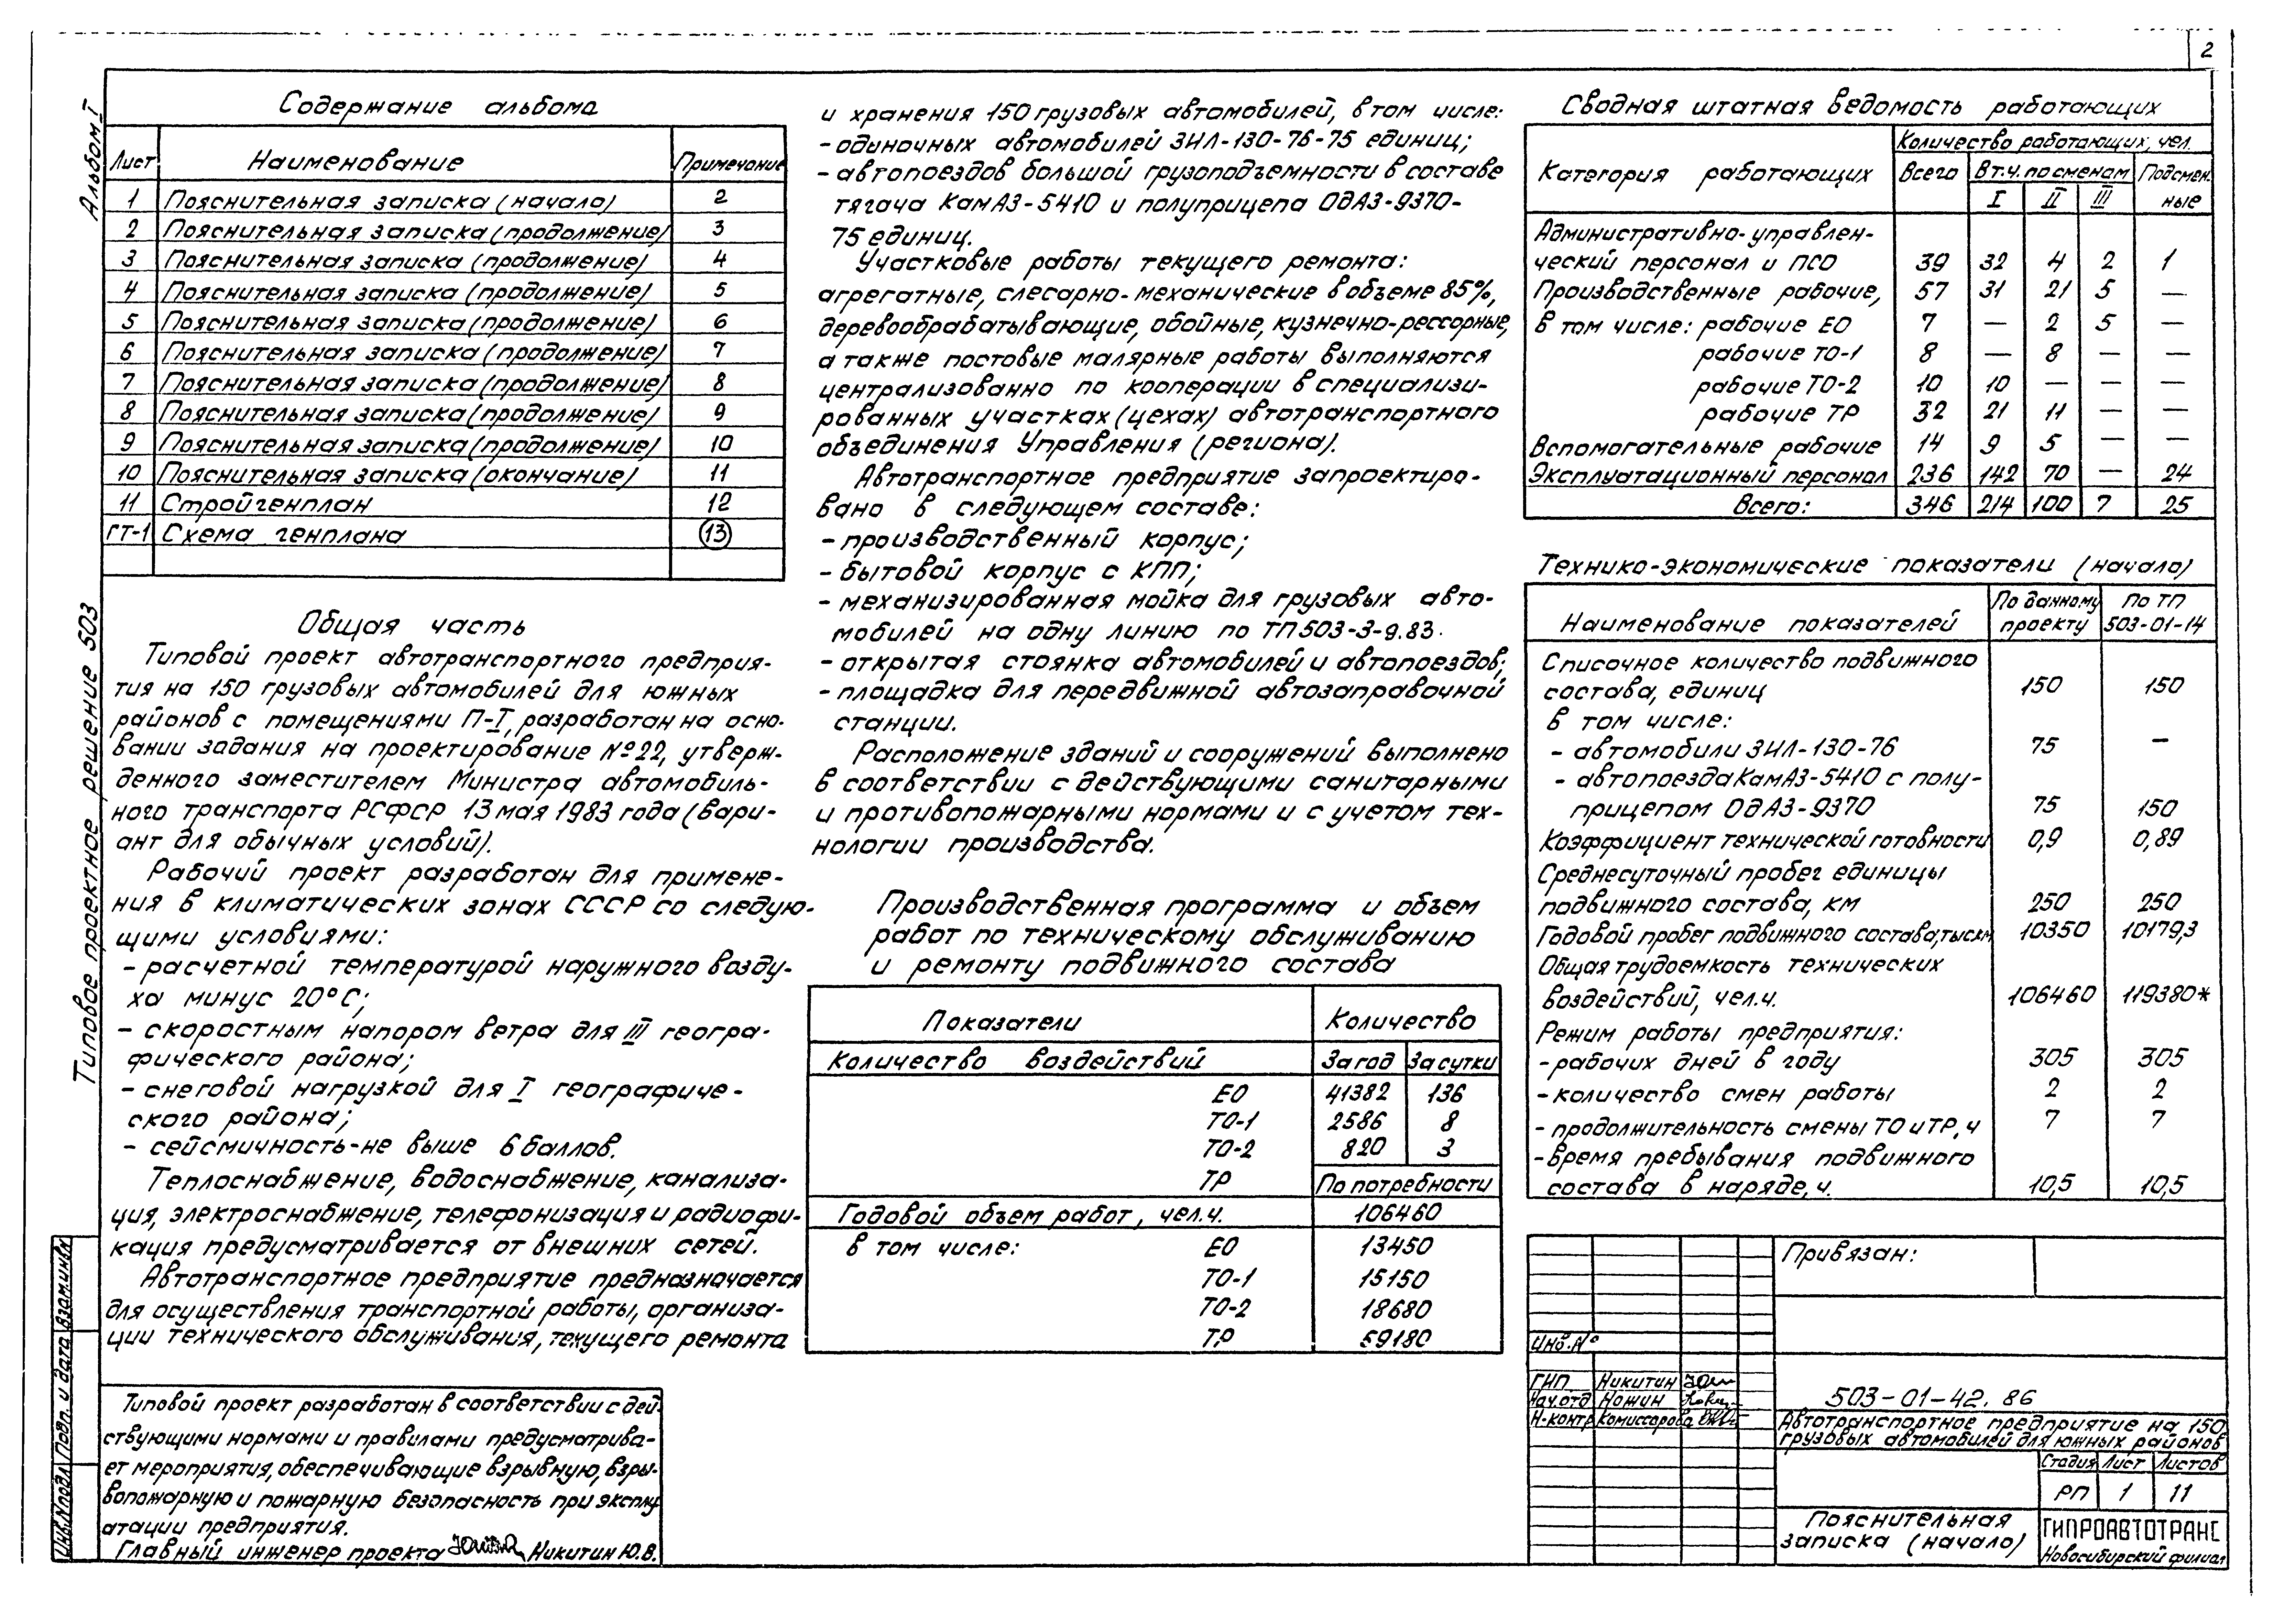 2
Альбом I
Типовое проектное решение 503
Содержание альбома
Лист Наименование Примечание
1 Пояснительная записка (начало) 2
2 Пояснительная записка (продолжение) 3
3 Пояснительная записка (продолжение) 4
4 Пояснительная записка (продолжение) 5
5 Пояснительная записка (продолжение) 6
6 Пояснительная записка (продолжение) 7
7 Пояснительная записка (продолжение) 8
8 Пояснительная записка (продолжение) 9
9 Пояснительная записка (продолжение) 10
10 Пояснительная записка (окончание) 11
11 Стройгенплан 12
ГТ-1 Схема генплана 13
Общая часть
Типовой проект автотранспортного предприя-
тия на 150 грузовых автомобилей для южных
районов с помещениями П-I, разработан на осно-
вании задания на проектирование №22, утверж-
денного заместителем Министра автомобиль-
ного транспорта РСФСР 13 мая 1983 года (вари-
ант для обычных условий).
Рабочий проект разработан для примене-
ния в климатических зонах СССР со следую-
щими условиями:
- расчетной температурой наружного возду-
ха минус 20°С;
- скоростным напором ветра для III геогра-
фического района;
- снеговой нагрузкой для I географиче-
ского района;
- сейсмичность-не выше 6 баллов.
Теплоснабжение, водоснабжение, канализа-
ция, электроснабжение, телефонизация и радиофи-
кация предусматривается от внешних сетей.
Автотранспортное предприятие предназначается
для осуществления транспортной работы, организа-
ции технического обслуживания, текущего ремонта
Типовой проект разработан в соответствии с дей-
ствующими нормами и правилами предусматрива-
ет мероприятия, обеспечивающие взрывную, взры-
вопожарную и пожарную безопасность при эксплу
атации предприятия.
Главный инженер проекта Никитин Ю.В.
Инв.№подл Подп. и дата Взам.инв.№
и хранения 150 грузовых автомобилей, в том числе:
- одиночных автомобилей ЗИЛ-130-76-75 единиц;
- автопоездов большой грузоподъемности в составе
тягача КамАЗ-5410 и полуприцепа ОдАЗ-9370-
75 единиц.
Участковые работы текущего ремонта:
агрегатные, слесарно-механические в объеме 85%,
деревообрабатывающие, обойные, кузнечно-рессорные,
а также постовые малярные работы выполняются
централизованно по кооперации в специализи-
рованных участках (цехах) автотранспортного
объединения Управления (региона).
Автотранспортное предприятие запроектиро-
вано в следующем составе:
- производственный корпус;
- бытовой корпус с КПП;
- механизированная мойка для грузовых авто-
мобилей на одну линию по ТП 503-3-9.83.
- открытая стоянка автомобилей и автопоездов;
- площадка для передвижной автозаправочной
станции.
Расположение зданий и сооружений выполнено
в соответствии с действующими санитарными
и противопожарными нормами и с учетом тех-
нологии производства.
Производственная программа и объем
работ по техническому обслуживанию
и ремонту подвижного состава
Показатели Количество
Количество воздействий За год За сутки
ЕО 41382 136
ТО-1 2586 8
ТО-2 820 3
ТР По потребности
Годовой объем работ, чел.ч. 106460
в том числе: ЕО 13450
ТО-1 15150
ТО-2 18680
ТР 59180
Сводная штатная ведомость работающих
Категория работающих Количество работающих, чел.
Всего В т.ч. по сменам Подсмен.
I II III ные
Административно-управлен-
ческий персонал и ПСО 39 32 4 2 1
Производственные рабочие, 57 31 21 5 —
в том числе: рабочие ЕО 7 — 2 5 —
рабочие ТО-1 8 — 8 — —
рабочие ТО-2 10 10 — — —
рабочие ТР 32 21 11 — —
Вспомогательные рабочие 14 9 5 — —
Эксплуатационный персонал 236 142 70 — 24
Всего: 346 214 100 7 25
Технико-экономические показатели (начало)
Наименование показателей По данному проекту По ТП 503-01-14
Списочное количество подвижного
состава, единиц 150 150
в том числе:
- автомобили ЗИЛ-130-76 75 —
- автопоезда КамАЗ-5410 с полу-
прицепом ОдАЗ-9370 75 150
Коэффициент технической готовности 0,9 0,89
Среднесуточный пробег единицы
подвижного состава, км 250 250
Годовой пробег подвижного состава, тыс.км 10350 10179,3
Общая трудоемкость технических
воздействий, чел.ч. 106460 119380*
Режим работы предприятия:
- рабочих дней в году 305 305
- количество смен работы 2 2
- продолжительность смены ТО и ТР, ч 7 7
- время пребывания подвижного
состава в наряде, ч. 10,5 10,5
Привязан:
Инв.№
ГИП Никитин
Нач.отд Ножин
Н-контр Комиссарова
503-01-42.86
Автотранспортное предприятие на 150
грузовых автомобилей для южных районов
Стадия Лист Листов
РП 1 11
Пояснительная
записка (начало)
ГИПРОАВТОТРАНС
Новосибирский филиал